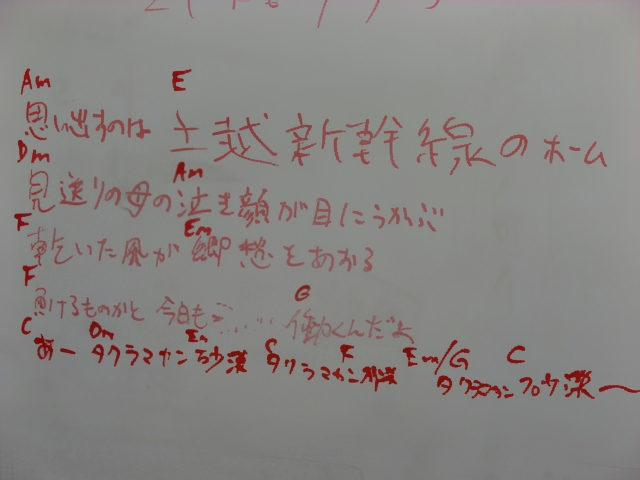 Am E
思い出すのは 上越新幹線のホーム
Dm Am
見送りの母の泣き顔が目にうかぶ
F Em
乾いた風が郷愁をあおる
F G
負けるものかと 今日も……… 働くんだよ
C Dm Em C F Em/G C
あー タクラマカン砂漠 タクラマカン砂漠 タクラマカン 漠〜